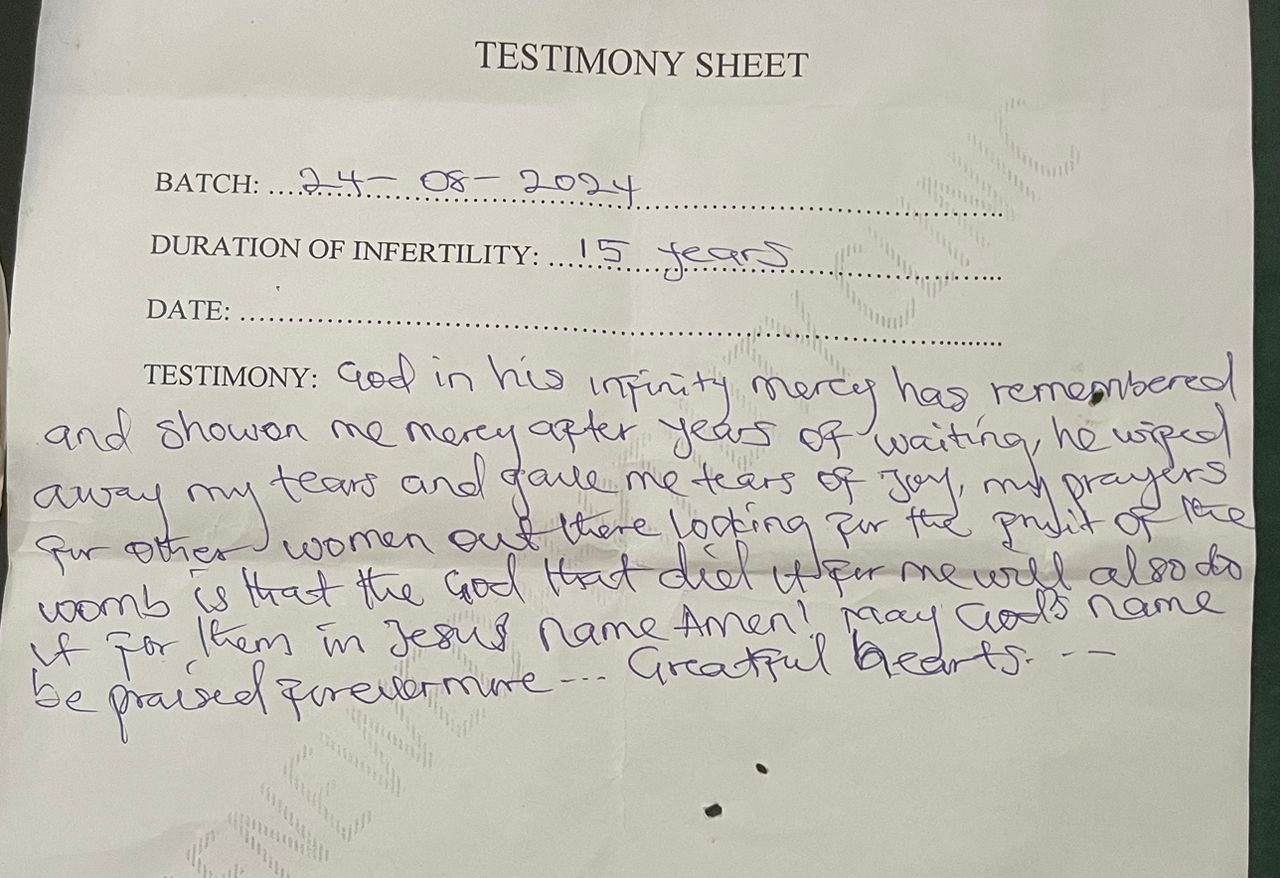 TESTIMONY SHEET
BATCH: 24- 08- 2024
DURATION OF INFERTILITY: 15 years
DATE:
TESTIMONY: God in his infinity mercy has remembered
and showon me mercy after years of waiting, he wiped
away my tears and gave me tears of Joy, my prayers
for other women out there looking for the fruit of the
womb is that the God that did it for me will also do
it for them in Jesus name Amen! may God's name
be praised forevermore --- Greatful hearts. --
CLINIC